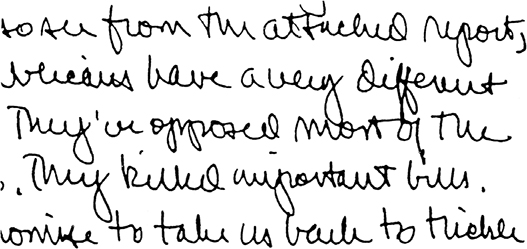 so see from the attached report,
blicans have a very different
They've opposed most of the
. They killed important bills.
omise to take us back to trickle